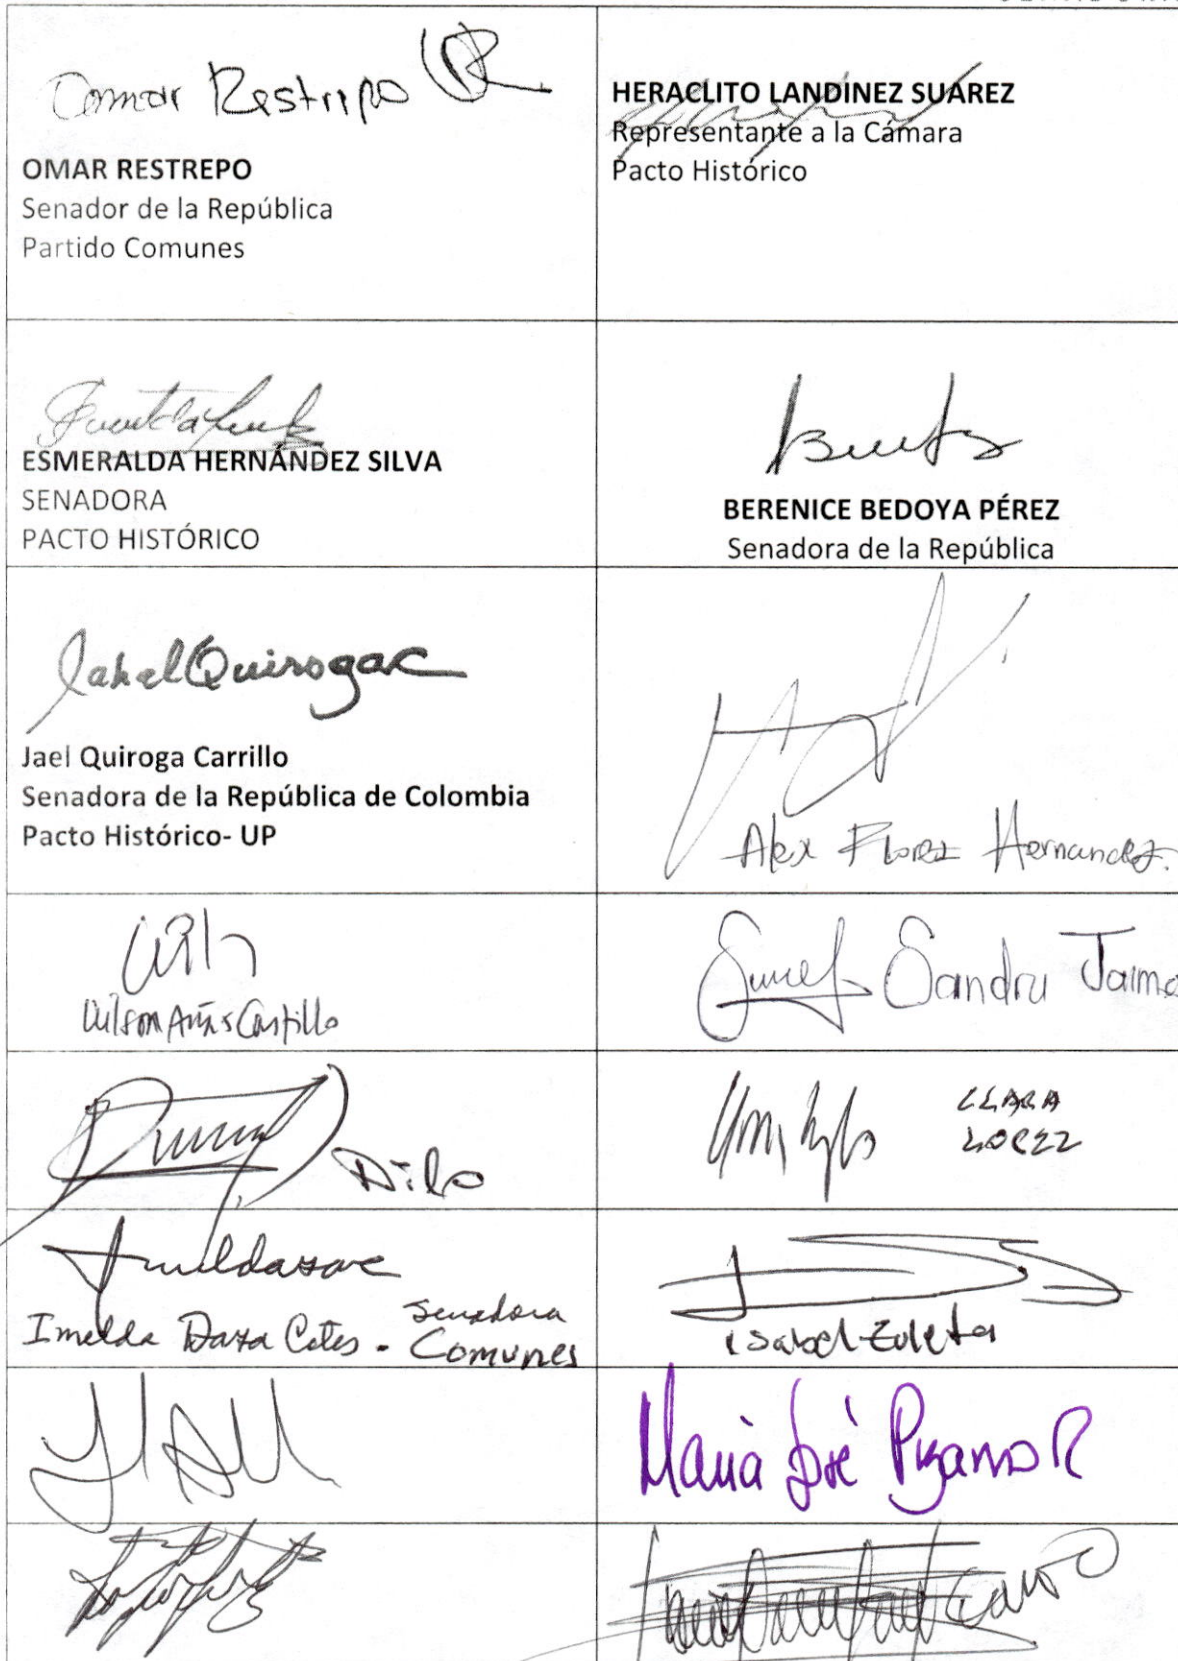 Omar Restripo
OMAR RESTREPO
Senador de la República
Partido Comunes
HERACLITO LANDÍNEZ SUÁREZ
Representante a la Cámara
Pacto Histórico
ESMERALDA HERNÁNDEZ SILVA
SENADORA
PACTO HISTÓRICO
BERENICE BEDOYA PÉREZ
Senadora de la República
Jahel Quiroga C
Jael Quiroga Carrillo
Senadora de la República de Colombia
Pacto Histórico- UP
Alex Florez Hernandez.
Wilson Arias Castillo
Sandra Jaime
CLARA
LOPEZ
Imelda Daza Cotes - Senadora
Comunes
Isabel Zuleta
María José Pizarro R